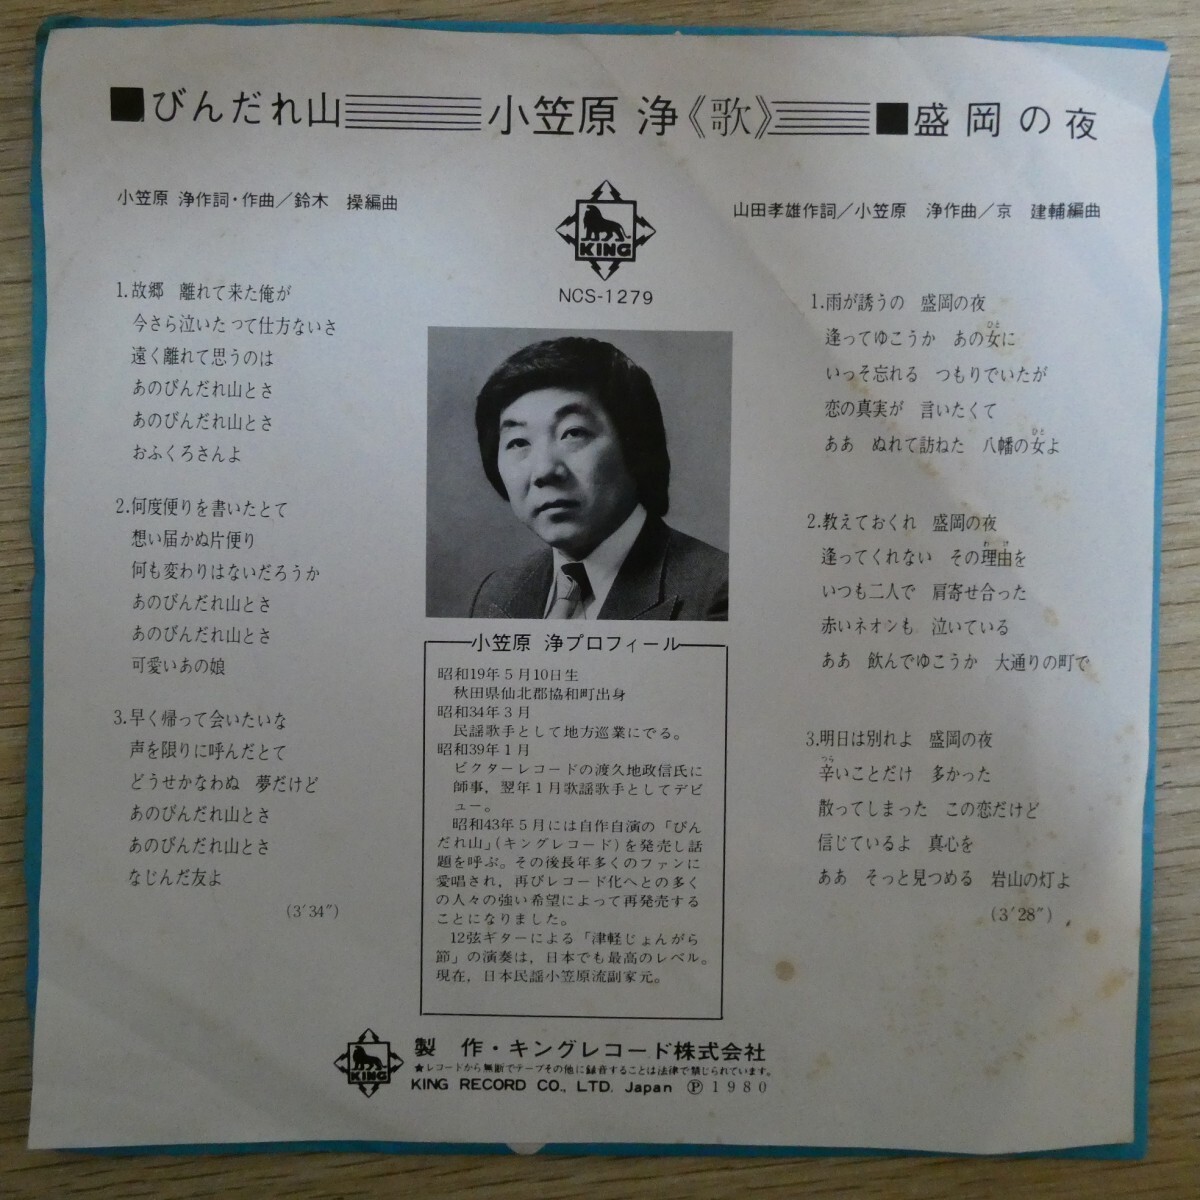 ■びんだれ山 小笠原 浄《歌》 ■盛岡の夜
小笠原 浄作詞・作曲／鈴木 操編曲
1.故郷 離れて来た俺が
今さら泣いたって仕方ないさ
遠く離れて思うのは
あのびんだれ山とさ
あのびんだれ山とさ
おふくろさんよ
2.何度便りを書いたとて
想い届かぬ片便り
何も変わりはないだろうか
あのびんだれ山とさ
あのびんだれ山とさ
可愛いあの娘
3.早く帰って会いたいな
声を限りに呼んだとて
どうせかなわぬ 夢だけど
あのびんだれ山とさ
あのびんだれ山とさ
なじんだ友よ
(3′34″)
KING
NCS-1279
小笠原 浄プロフィール
昭和19年5月10日生
秋田県仙北郡協和町出身
昭和34年3月
民謡歌手として地方巡業にでる。
昭和39年1月
ビクターレコードの渡久地政信氏に
師事，翌年1月歌謡歌手としてデビ
ュー。
昭和43年5月には自作自演の「びん
だれ山」(キングレコード)を発売し話
題を呼ぶ。その後長年多くのファンに
愛唱され，再びレコード化へとの多く
の人々の強い希望によって再発売する
ことになりました。
12弦ギターによる「津軽じょんがら
節」の演奏は，日本でも最高のレベル。
現在，日本民謡小笠原流副家元。
山田孝雄作詞／小笠原 浄作曲／京 建輔編曲
1.雨が誘うの 盛岡の夜
逢ってゆこうか あの女に
ひと
いっそ忘れる つもりでいたが
恋の真実が 言いたくて
ああ ぬれて訪ねた 八幡の女よ
ひと
2.教えておくれ 盛岡の夜
逢ってくれない その理由を
わけ
いつも二人で 肩寄せ合った
赤いネオンも 泣いている
ああ 飲んでゆこうか 大通りの町で
3.明日は別れよ 盛岡の夜
辛いことだけ 多かった
つら
散ってしまった この恋だけど
信じているよ 真心を
ああ そっと見つめる 岩山の灯よ
(3′28″)
KING
製 作・キングレコード株式会社
★レコードから無断でテープその他に録音することは法律で禁じられています。
KING RECORD CO., LTD. Japan Ⓟ1980